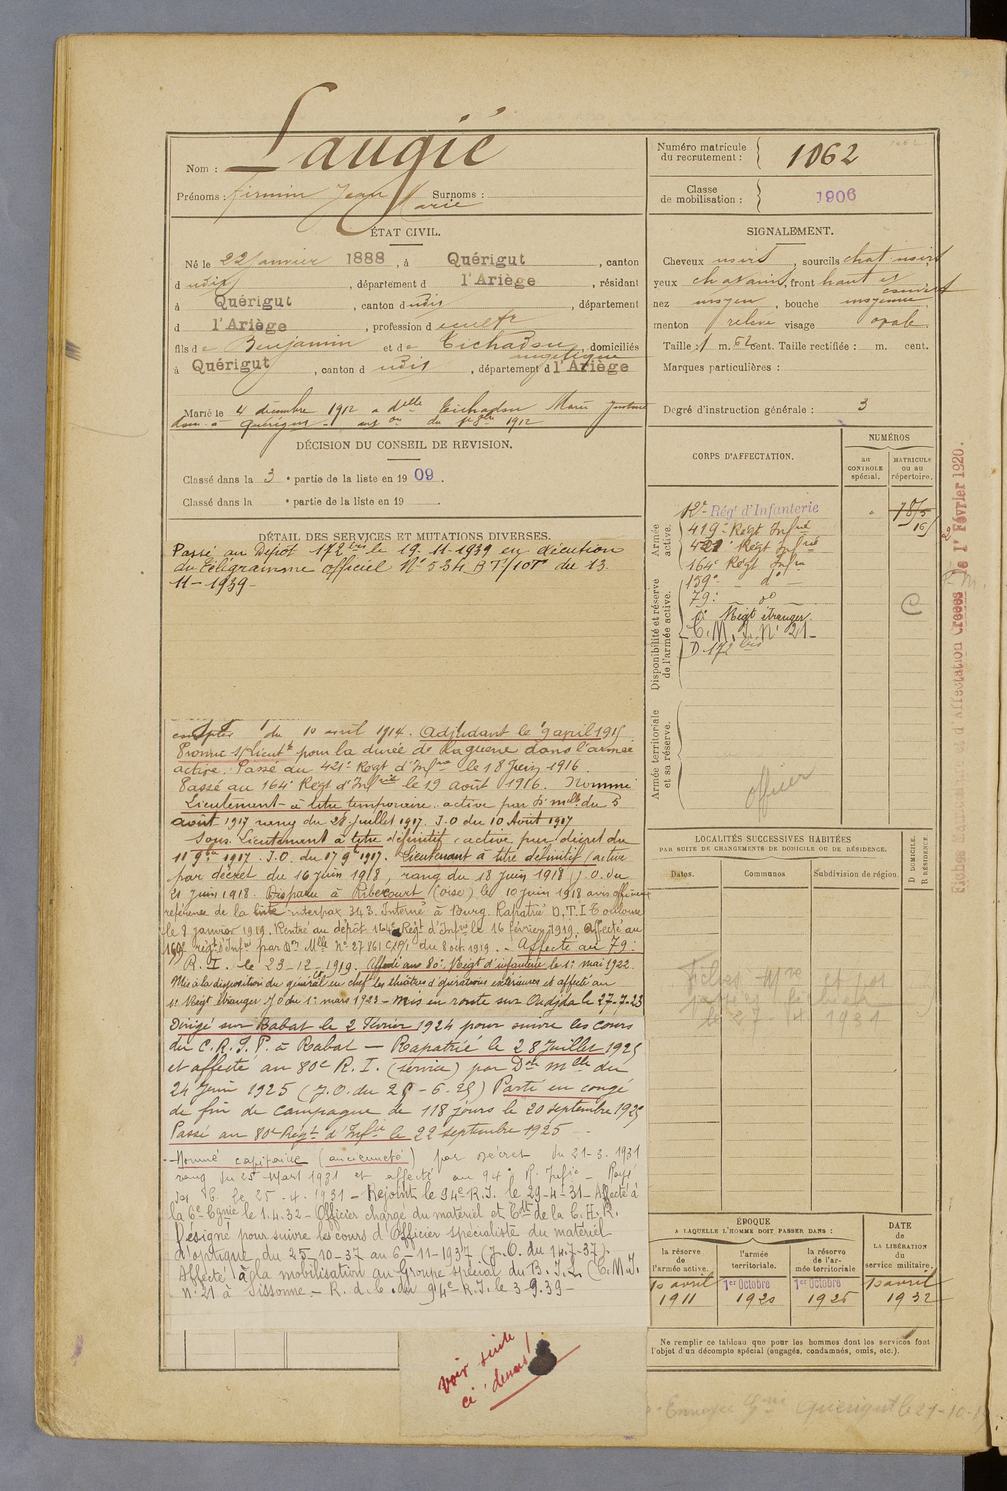 Nom : Laugié
Prénoms : Firmin Jean Marie Surnoms :
Numéro matricule du recrutement : 1062
Classe de mobilisation : 1906
ÉTAT CIVIL.
Né le 22 Janvier 1888, à Quérigut, canton
d udit, département d l'Ariège, résidant
à Quérigut, canton d udit, département
d l'Ariège, profession d cultr
fils de Benjamin et de Tichadou Angélique, domiciliés
à Quérigut, canton d udit, département d l'Ariège
Marié le 4 décembre 1912 a delle Tichadou Marie Justine
dom. à Quérigut
SIGNALEMENT.
Cheveux noirs, sourcils chat. noirs
yeux chatains, front haut et couvert
nez moyen, bouche moyenne,
menton relevé visage ovale.
Taille : 1 m. 62 cent. Taille rectifiée : m. cent.
Marques particulières :
Degré d'instruction générale : 3
DÉCISION DU CONSEIL DE REVISION.
Classé dans la 3 e partie de la liste en 1909.
Classé dans la e partie de la liste en 19 .
DÉTAIL DES SERVICES ET MUTATIONS DIVERSES.
Passé au Dépôt 172 bis le 19-11-1939 en exécution
du Télégramme officiel N° 534 BT/10T du 13
11-1939-
compter du 10 avril 1914. Adjudant le 9 avril 1915
Promu s/Lieutt pour la durée de la guerre dans l'armée
active. Passé au 421e Regt d'Infrie le 18 Juin 1916.
Passé au 164e Regt d'Infrie le 19 août 1916. Nommé
Lieutenant à titre temporaire active par D. mlle du 5
août 1917 rang du 28 Juillet 1917. J.O du 10 Août 1917
Sous-Lieutenant à titre définitif, active par décret du
11 9bre 1917. J.O. du 17 9bre 1917. Lieutenant à titre définitif, active
par décret du 16 Juin 1918, rang du 18 Juin 1918, J.O. du
21 Juin 1918. Disparu à Ribecourt (Oise) le 10 Juin 1918 avis officiel
référence de la liste interpax 343. Interné à Burg. Rapatrié D.T.I Toulouse
le 8 janvier 1919. Rentré au dépôt 164e Régt d'Infrie le 16 février 1919. Affecté au
159e régt d'Infie par Don Mlle N° 27861 du 8 oct. 1919. - Affecté au 79e
R.I. le 23-12-1919. Affecté au 80e Régt d'infanterie le 1er mai 1922
Mis à la disposition du général en chef les théâtres d'opérations extérieures et affecté au
1er Régt étranger JO du 1er mars 1923 - Mis en route sur Oudjda le 27-7-23
Dirigé sur Rabat le 2 Février 1924 pour suivre les cours
du C.R.I.P. à Rabat - Rapatrié le 28 Juillet 1925
et affecté au 80e R.I. (service) par Don mlle du
24 Juin 1925 (J.O. du 25-6-25) Parti en congé
de fin de campagne de 118 jours le 20 septembre 1925
Passé au 80e Régt d'Infie le 22 septembre 1925
-Nommé capitaine (ancienneté) par décret du 21-3-1931
rang du 25 Mars 1931 et affecté au 94e R. Infie -
le 25-4-1931 - Rejoint le 94e R.I. le 29-4-31 - Affecté à
la 6e Cgnie le 1.4.32 - Officier chargé du matériel et Cdt de la C.H.R.
Désigné pour suivre les cours d'Officier spécialiste du matériel
d'optique, du 25-10-37 au 6-11-1937 (J.O. du 14-7-37).
Affecté à la mobilisation au Groupe spécial du B.I.L (C.M.I.
n° 21 à Sissonne - R.d.C. du 94e R.I. le 3-9.39-
voir suite
ci-dessus !
CORPS D'AFFECTATION.
NUMÉROS
au CONTROLE spécial.
MATRICULE ou au répertoire.
Armée active.
Disponibilité et réserve de l'armée active.
Armée territoriale et sa réserve.
12e Régt d'Infanterie
419e Regt Infrie
421e Regt Infrie
164e Regt Infie
159e - do -
79e - do -
1er Régt étranger.
C.M.I. N° 21-
D. 172 bis
C
officier
LOCALITÉS SUCCESSIVES HABITÉES
PAR SUITE DE CHANGEMENTS DE DOMICILE OU DE RÉSIDENCE.
Dates. Communes Subdivision de région.
D DOMICILE.
R RÉSIDENCE.
Fiches Mre et
passées
le 27 4 1931
ÉPOQUE
A LAQUELLE L'HOMME DOIT PASSER DANS :
la réserve de l'armée active.
l'armée territoriale.
la réserve de l'armée territoriale
DATE DE LA LIBÉRATION du service militaire.
10 avril 1911
1er Octobre 1920
1er Octobre 1926
10 avril 1932
Ne remplir ce tableau que pour les hommes dont les services font
l'objet d'un décompte spécial (engagés, condamnés, omis, etc.).
Quérigut le 27-10-
Fiches et d'Affectation Créées le 1er Février 1920.